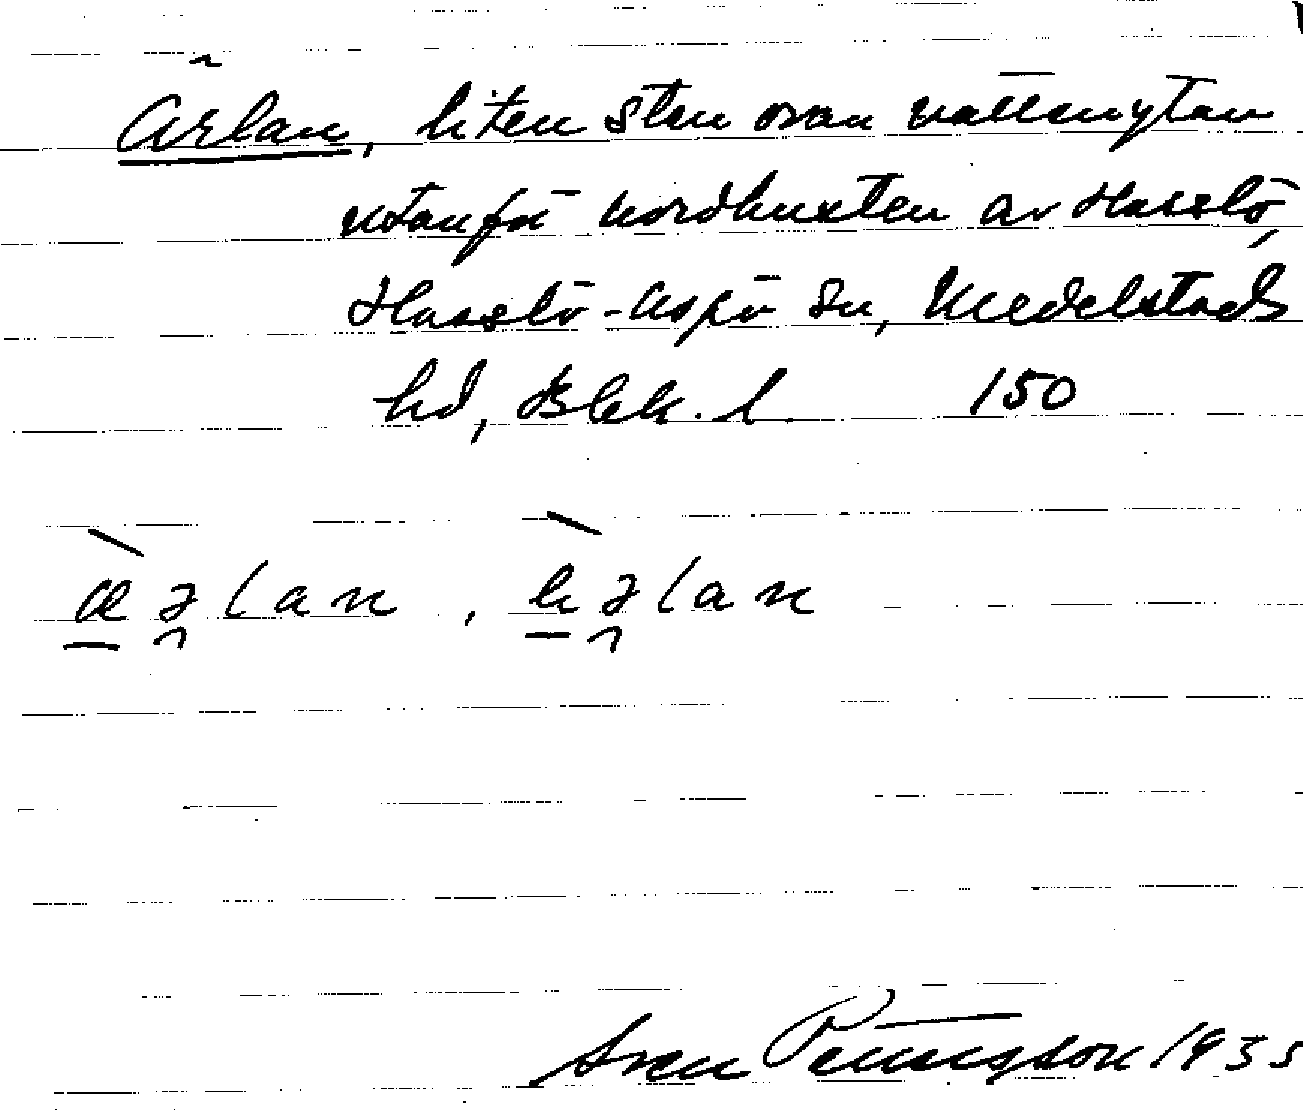 Ärlan, liten sten ovan vattenytan
utanför nordkusten av Hasslö,
Hasslö-Aspö sn, Medelstads
hd, Blek. l. 150
Sven Pettersson 1935